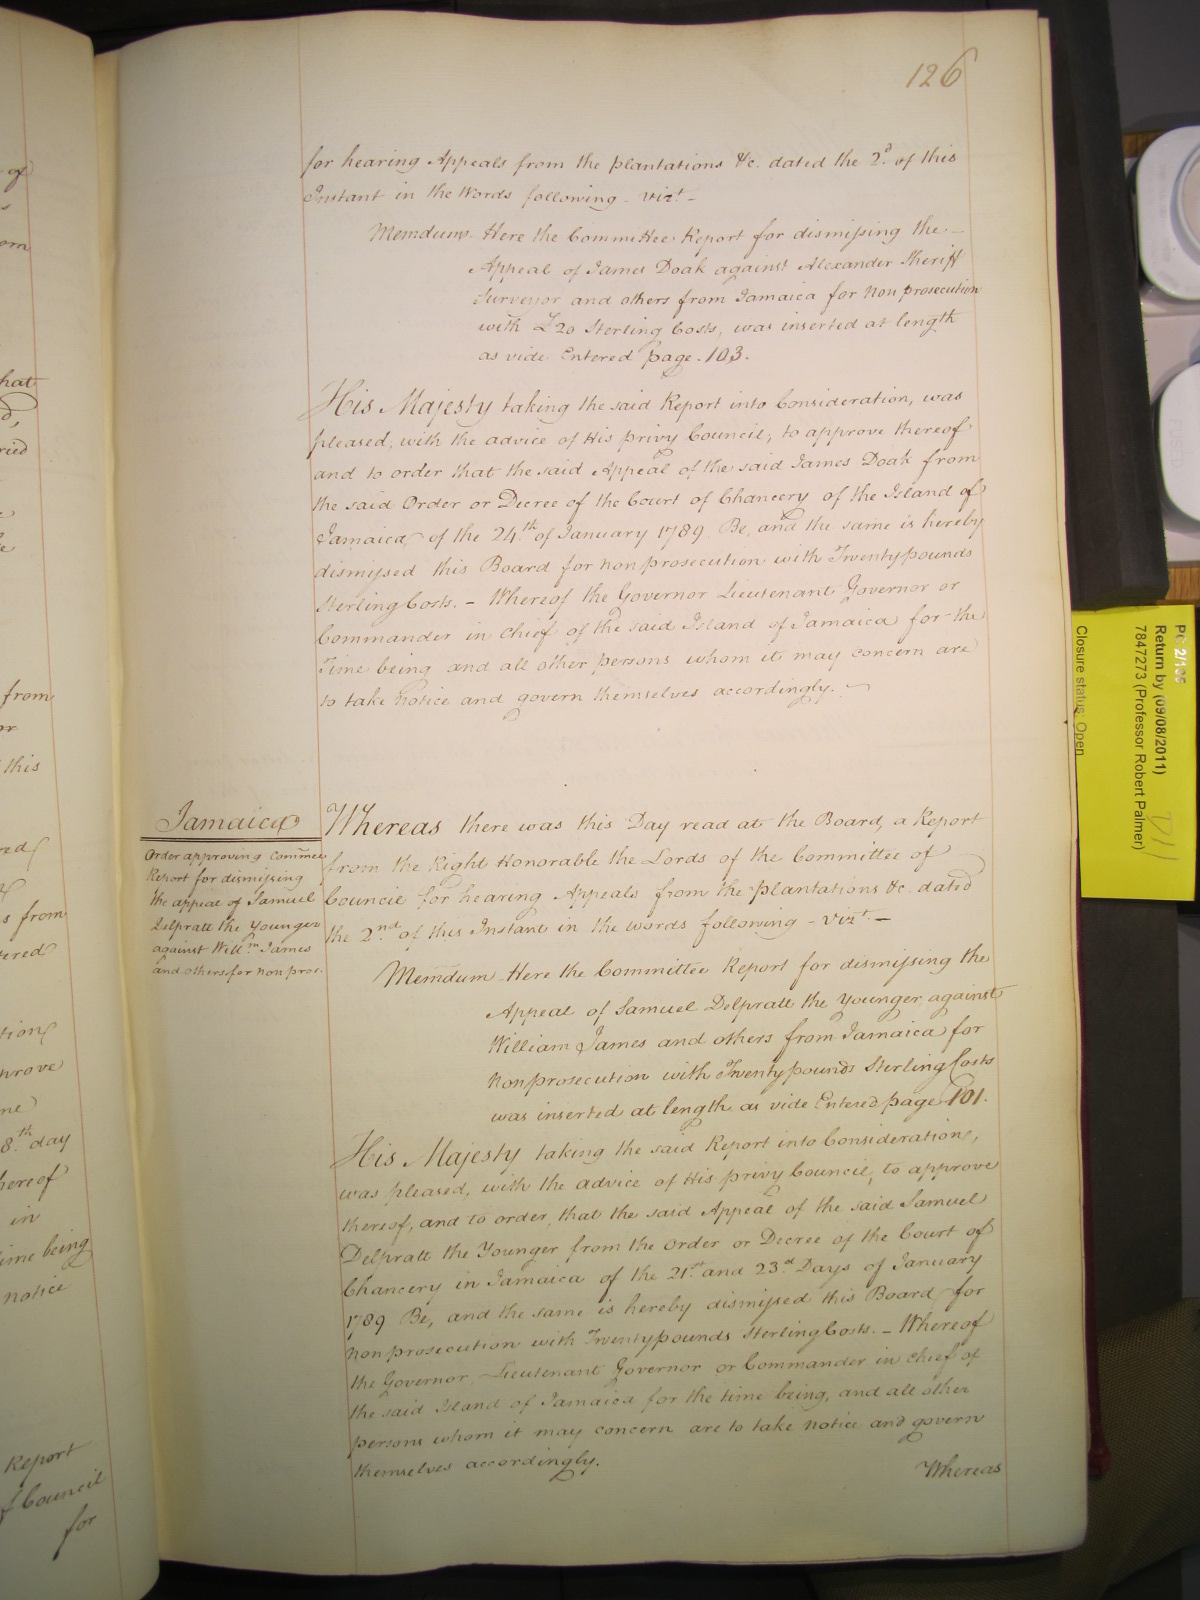 126
for hearing Appeals from the Plantations &c. dated the 2d. of this
Instant in the Words following - vizt. -
Memdum. Here the Committee Report for dismissing the -
Appeal of James Doak against Alexander Sheriff
Surveyor and others from Jamaica for non prosecution
with £20 Sterling Costs, was inserted at length
as vide Entered page. 103.
His Majesty taking the said Report into Consideration, was
pleased, with the advice of His privy Council, to approve thereof
and to order that the said Appeal of the said James Doak from
the said Order or Decree of the Court of Chancery of the Island of
Jamaica of the 24th. of January 1789 Be, and the same is hereby
dismissed this Board for non prosecution with Twenty pounds
Sterling Costs. - Whereof the Governor Lieutenant Governor or
Commander in Chief of the said Island of Jamaica for the
Time being and all other persons whom it may concern are
to take notice and govern themselves accordingly. -
Jamaica
Order approving Commee
Report for dismissing
the appeal of Samuel
Delpratt the Younger
against Willm. James
and others for non pros.
Whereas there was this Day read at the Board, a Report
from the Right Honorable the Lords of the Committee of
Council for hearing Appeals from the Plantations &c. dated
the 2nd. of this Instant in the words following - vizt. -
Memdum Here the Committee Report for dismissing the
Appeal of Samuel Delpratt the Younger, against
William James and others from Jamaica for
non prosecution with Twenty pounds Sterling Costs
was inserted at length as vide Entered page 101.
His Majesty taking the said Report into Consideration,
was pleased, with the advice of His privy Council, to approve
thereof, and to order, that the said Appeal of the said Samuel
Delpratt the Younger from the Order or Decree of the Court of
Chancery in Jamaica of the 21st. and 23d. Days of January
1789 Be, and the same is hereby dismissed this Board for
non prosecution with Twenty pounds Sterling Costs. - Whereof
the Governor, Lieutenant Governor or Commander in Chief of
the said Island of Jamaica for the time being, and all other
persons whom it may concern are to take notice and govern
themselves accordingly.
Whereas
of
hat
from
this
s from
8th. day
hereof
in
time being
notice
Report
of Council
for
PC 2/135
Return by (09/08/2011)
7847273 (Professor Robert Palmer)
Closure status: Open